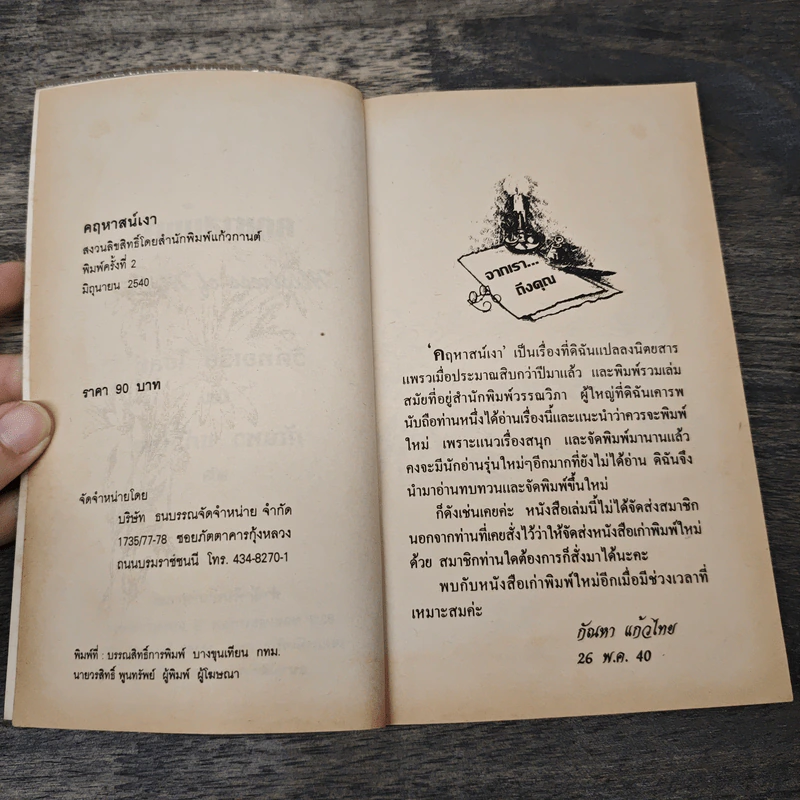 คฤหาสน์เงา
สงวนลิขสิทธิ์โดยสำนักพิมพ์แก้วกานต์
พิมพ์ครั้งที่ 2
มิถุนายน 2540
ราคา 90 บาท
จัดจำหน่ายโดย
บริษัท ธนบรรณจัดจำหน่าย จำกัด
1735/77-78 ซอยภัตตาคารกุ้งหลวง
ถนนบรมราชชนนี โทร. 434-8270-1
พิมพ์ที่ : บรรณสิทธิ์การพิมพ์ บางขุนเทียน กทม.
นายวรสิทธิ์ พูนทรัพย์ ผู้พิมพ์ ผู้โฆษณา
จากเรา...
ถึงคุณ
'คฤหาสน์เงา' เป็นเรื่องที่ดิฉันแปลลงนิตยสาร
แพรวเมื่อประมาณสิบกว่าปีมาแล้ว และพิมพ์รวมเล่ม
สมัยที่อยู่สำนักพิมพ์วรรณวิภา ผู้ใหญ่ที่ดิฉันเคารพ
นับถือท่านหนึ่งได้อ่านเรื่องนี้และแนะนำว่าควรจะพิมพ์
ใหม่ เพราะแนวเรื่องสนุก และจัดพิมพ์มานานแล้ว
คงจะมีนักอ่านรุ่นใหม่ๆอีกมากที่ยังไม่ได้อ่าน ดิฉันจึง
นำมาอ่านทบทวนและจัดพิมพ์ขึ้นใหม่
ก็ดังเช่นเคยค่ะ หนังสือเล่มนี้ไม่ได้จัดส่งสมาชิก
นอกจากท่านที่เคยสั่งไว้ว่าให้จัดส่งหนังสือเก่าพิมพ์ใหม่
ด้วย สมาชิกท่านใดต้องการก็สั่งมาได้นะคะ
พบกับหนังสือเก่าพิมพ์ใหม่อีกเมื่อมีช่วงเวลาที่
เหมาะสมค่ะ
กัณหา แก้วไทย
26 พ.ค. 40